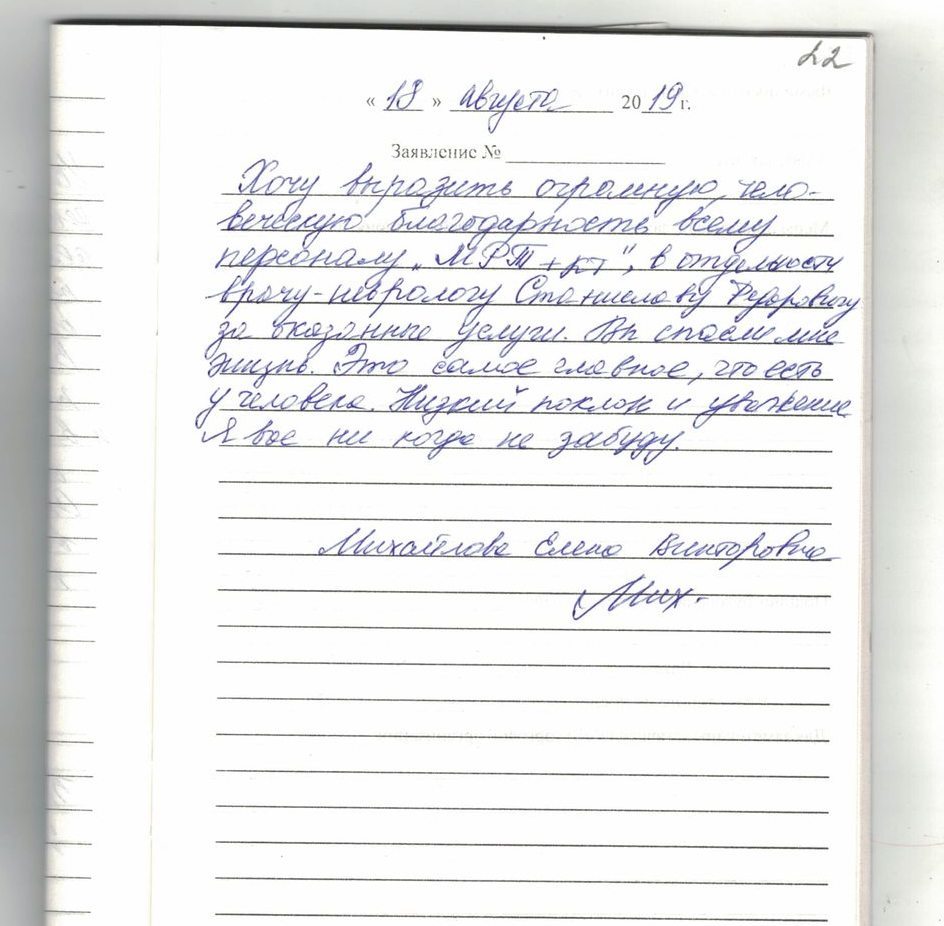 22
« 18 » августа 2019 г.
Заявление №
Хочу выразить огромную, чело-
веческую благодарность всему
персоналу „МРТ + КТ", в отдельности
врачу-неврологу Станиславу Федоровичу
за оказанные услуги. Вы спасли мне
жизнь. Это самое главное, что есть
у человека. Низкий поклон и уважение
Я вас ни когда не забуду.
Михайлова Елена Викторовна
Мих.